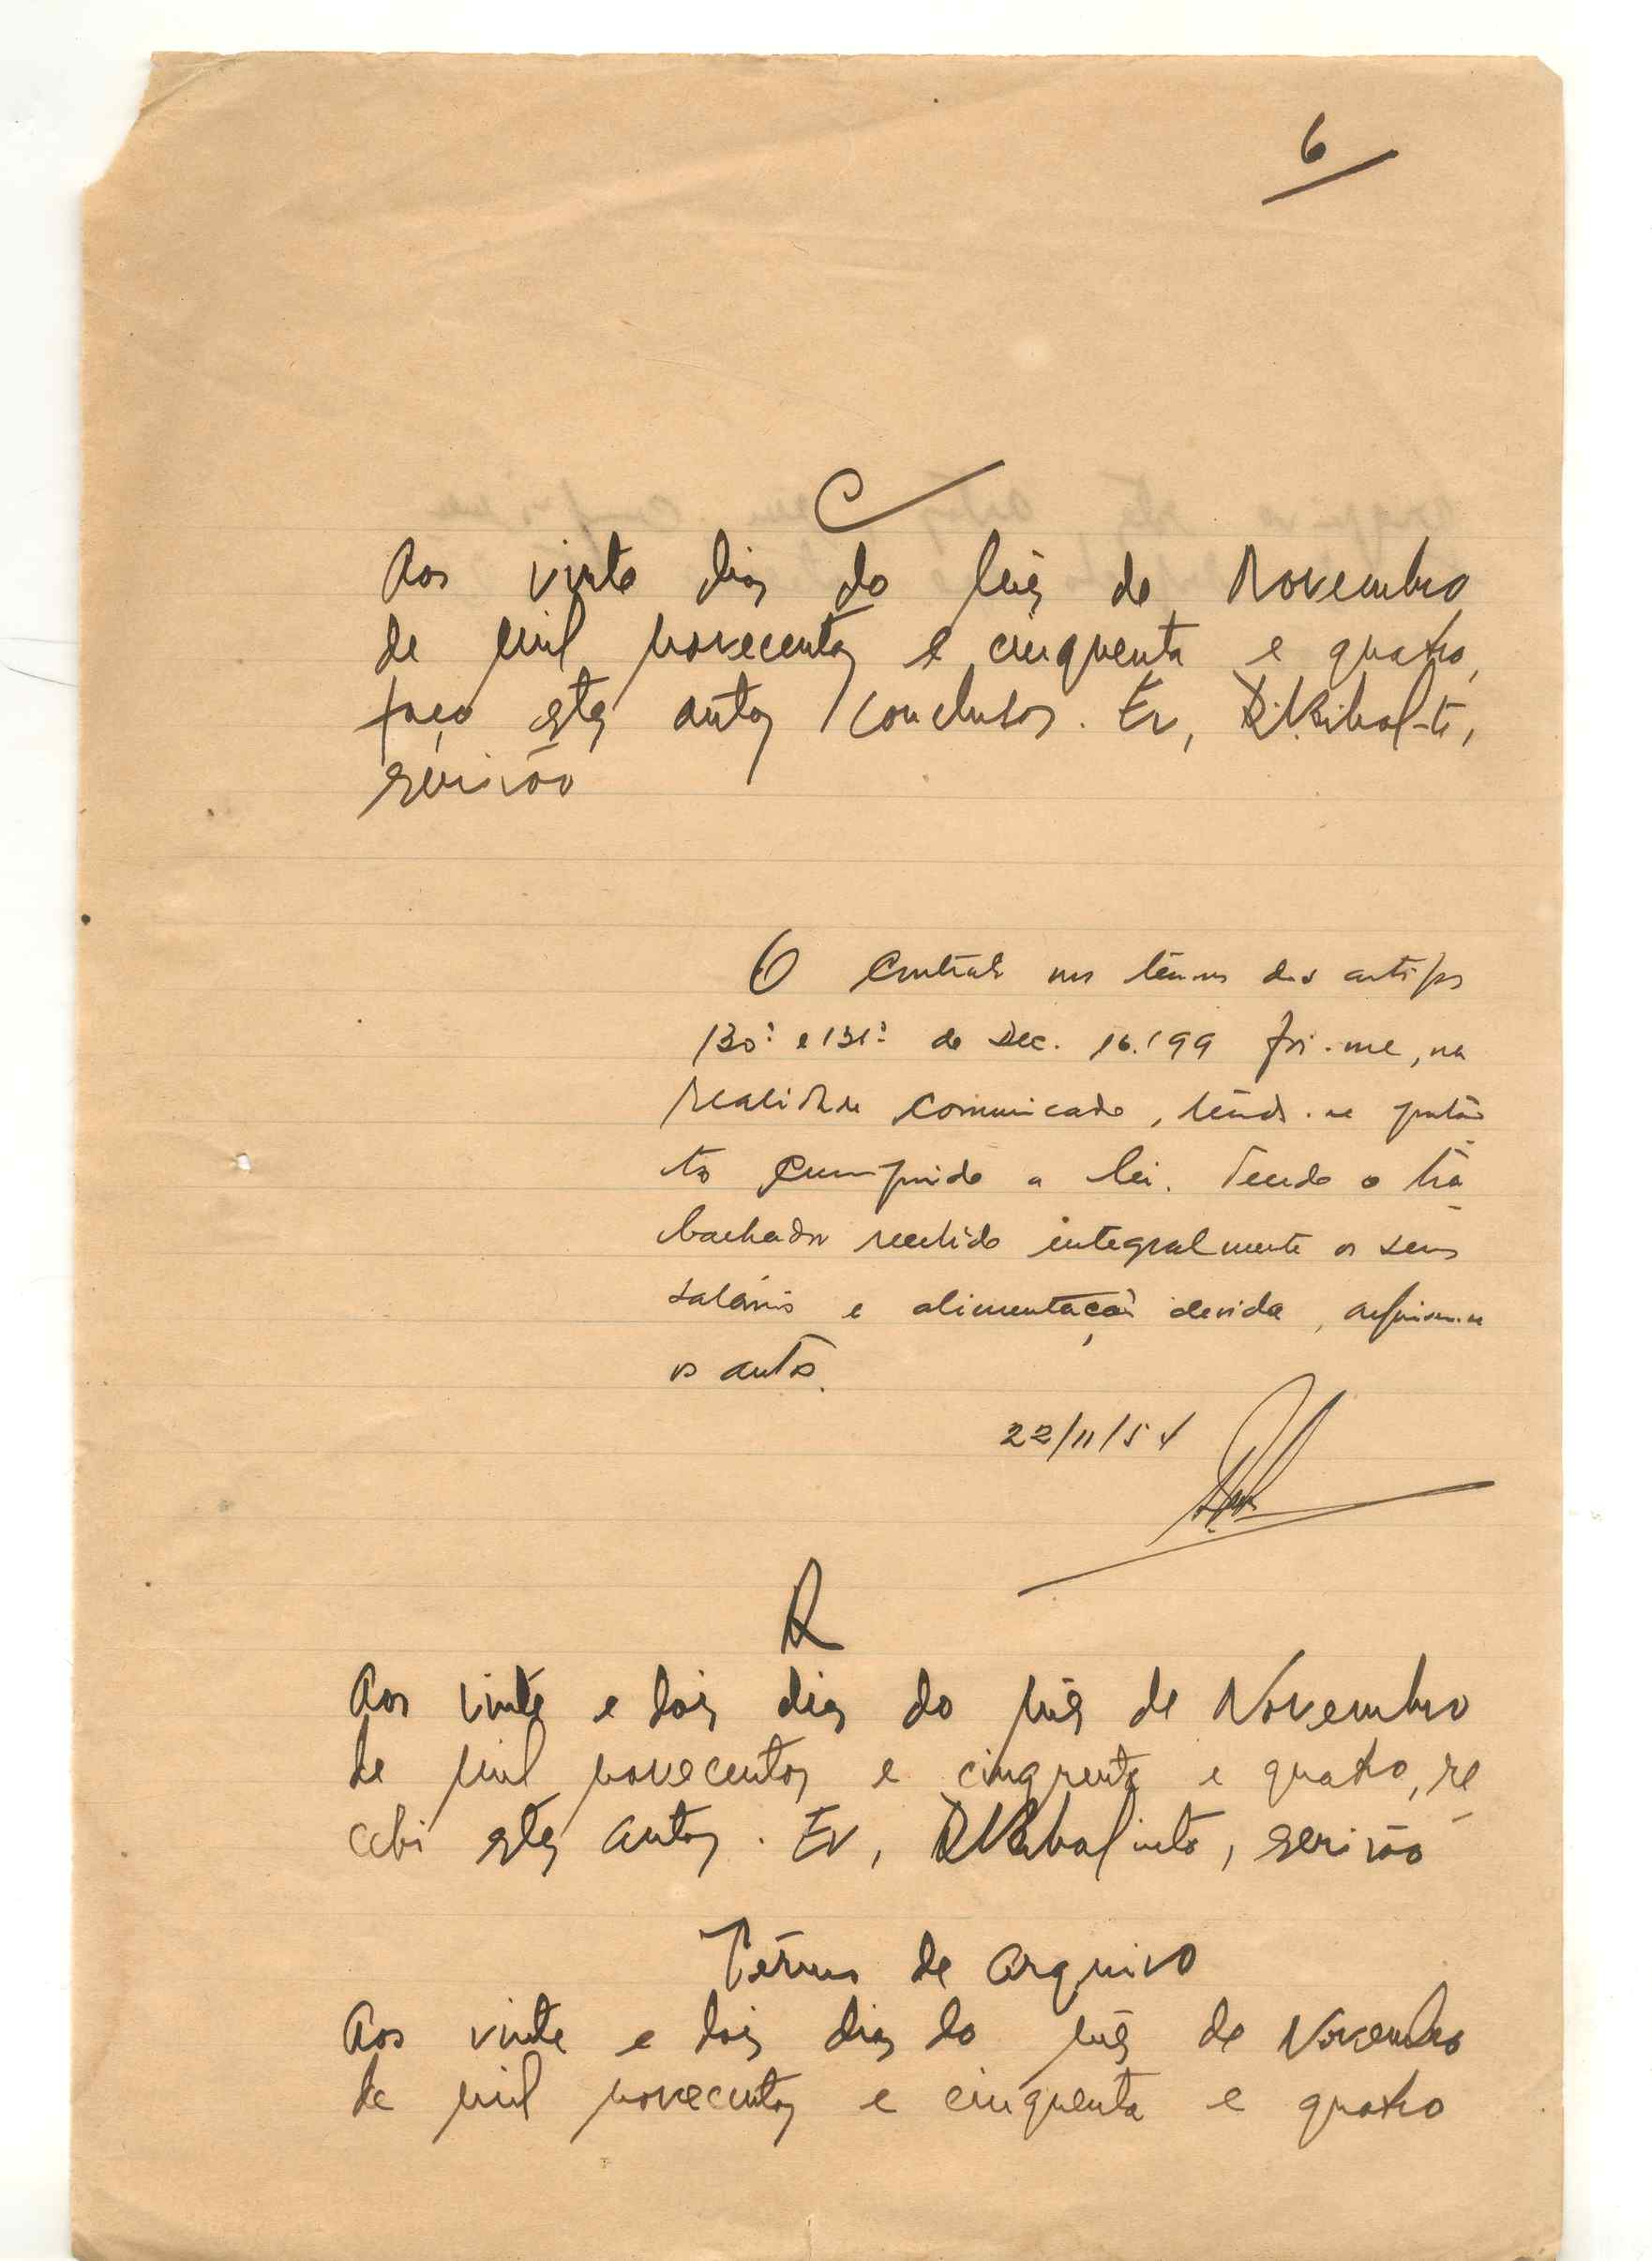 6
C
Aos vinte dias do mês de Novembro
de mil novecentos e cinquenta e quatro,
faço estes autos conclusos. Eu,
escrivão
O contrato nos têrmos dos artigos
130º e 131º do Dec. 16.199 foi-me, na
realidade comunicado, tendo-se portan
to cumprido a lei. Tendo o tra
balhador recebido integralmente os seus
salários e alimentação devida, arquivem-se
os autos.
22/11/54
R
Aos vinte e dois dias do mês de Novembro
de mil novecentos e cinquenta e quatro, re
cebi estes autos. Eu, escrivão
Têrmo de arquivo
Aos vinte e dois dias do mês de Novembro
de mil novecentos e cinquenta e quatro